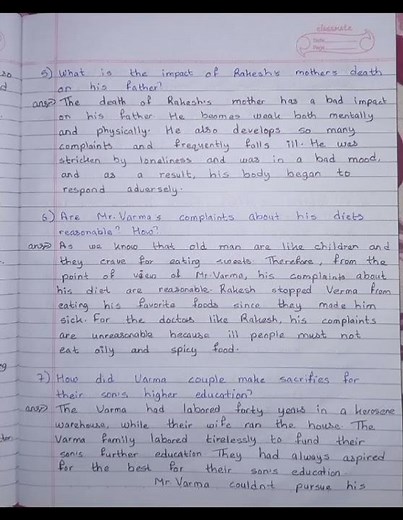 classmate
Date
Page
5) What is the impact of Rakesh's mother's death
on his father?
ans⇒ The death of Rakesh's mother has a bad impact
on his father He becomes weak both mentally
and physically. He also develops so many
complaints and frequently falls ill. He was
stricken by loneliness and was in a bad mood,
and as a result, his body began to
respond adversely.
6) Are Mr. Varma's complaints about his diets
reasonable? How?
ans⇒ As we know that old man are like children and
they crave for eating sweets Therefore, from the
point of view of Mr. Varma, his complaints about
his diet are reasonable. Rakesh stopped Verma from
eating his favorite foods since they made him
sick. For the doctors like Rakesh, his complaints
are unreasonable because ill people must not
eat oily and spicy food.
7) How did Varma couple make sacrifies for
their son's higher education?
ans⇒ The Varma had labored forty years in a kerosene
warehouse, while their wife ran the house The
Varma family labored tirelessly to fund their
son's further education They had always aspired
for the best for their son's education
Mr Varma couldnt pursue his